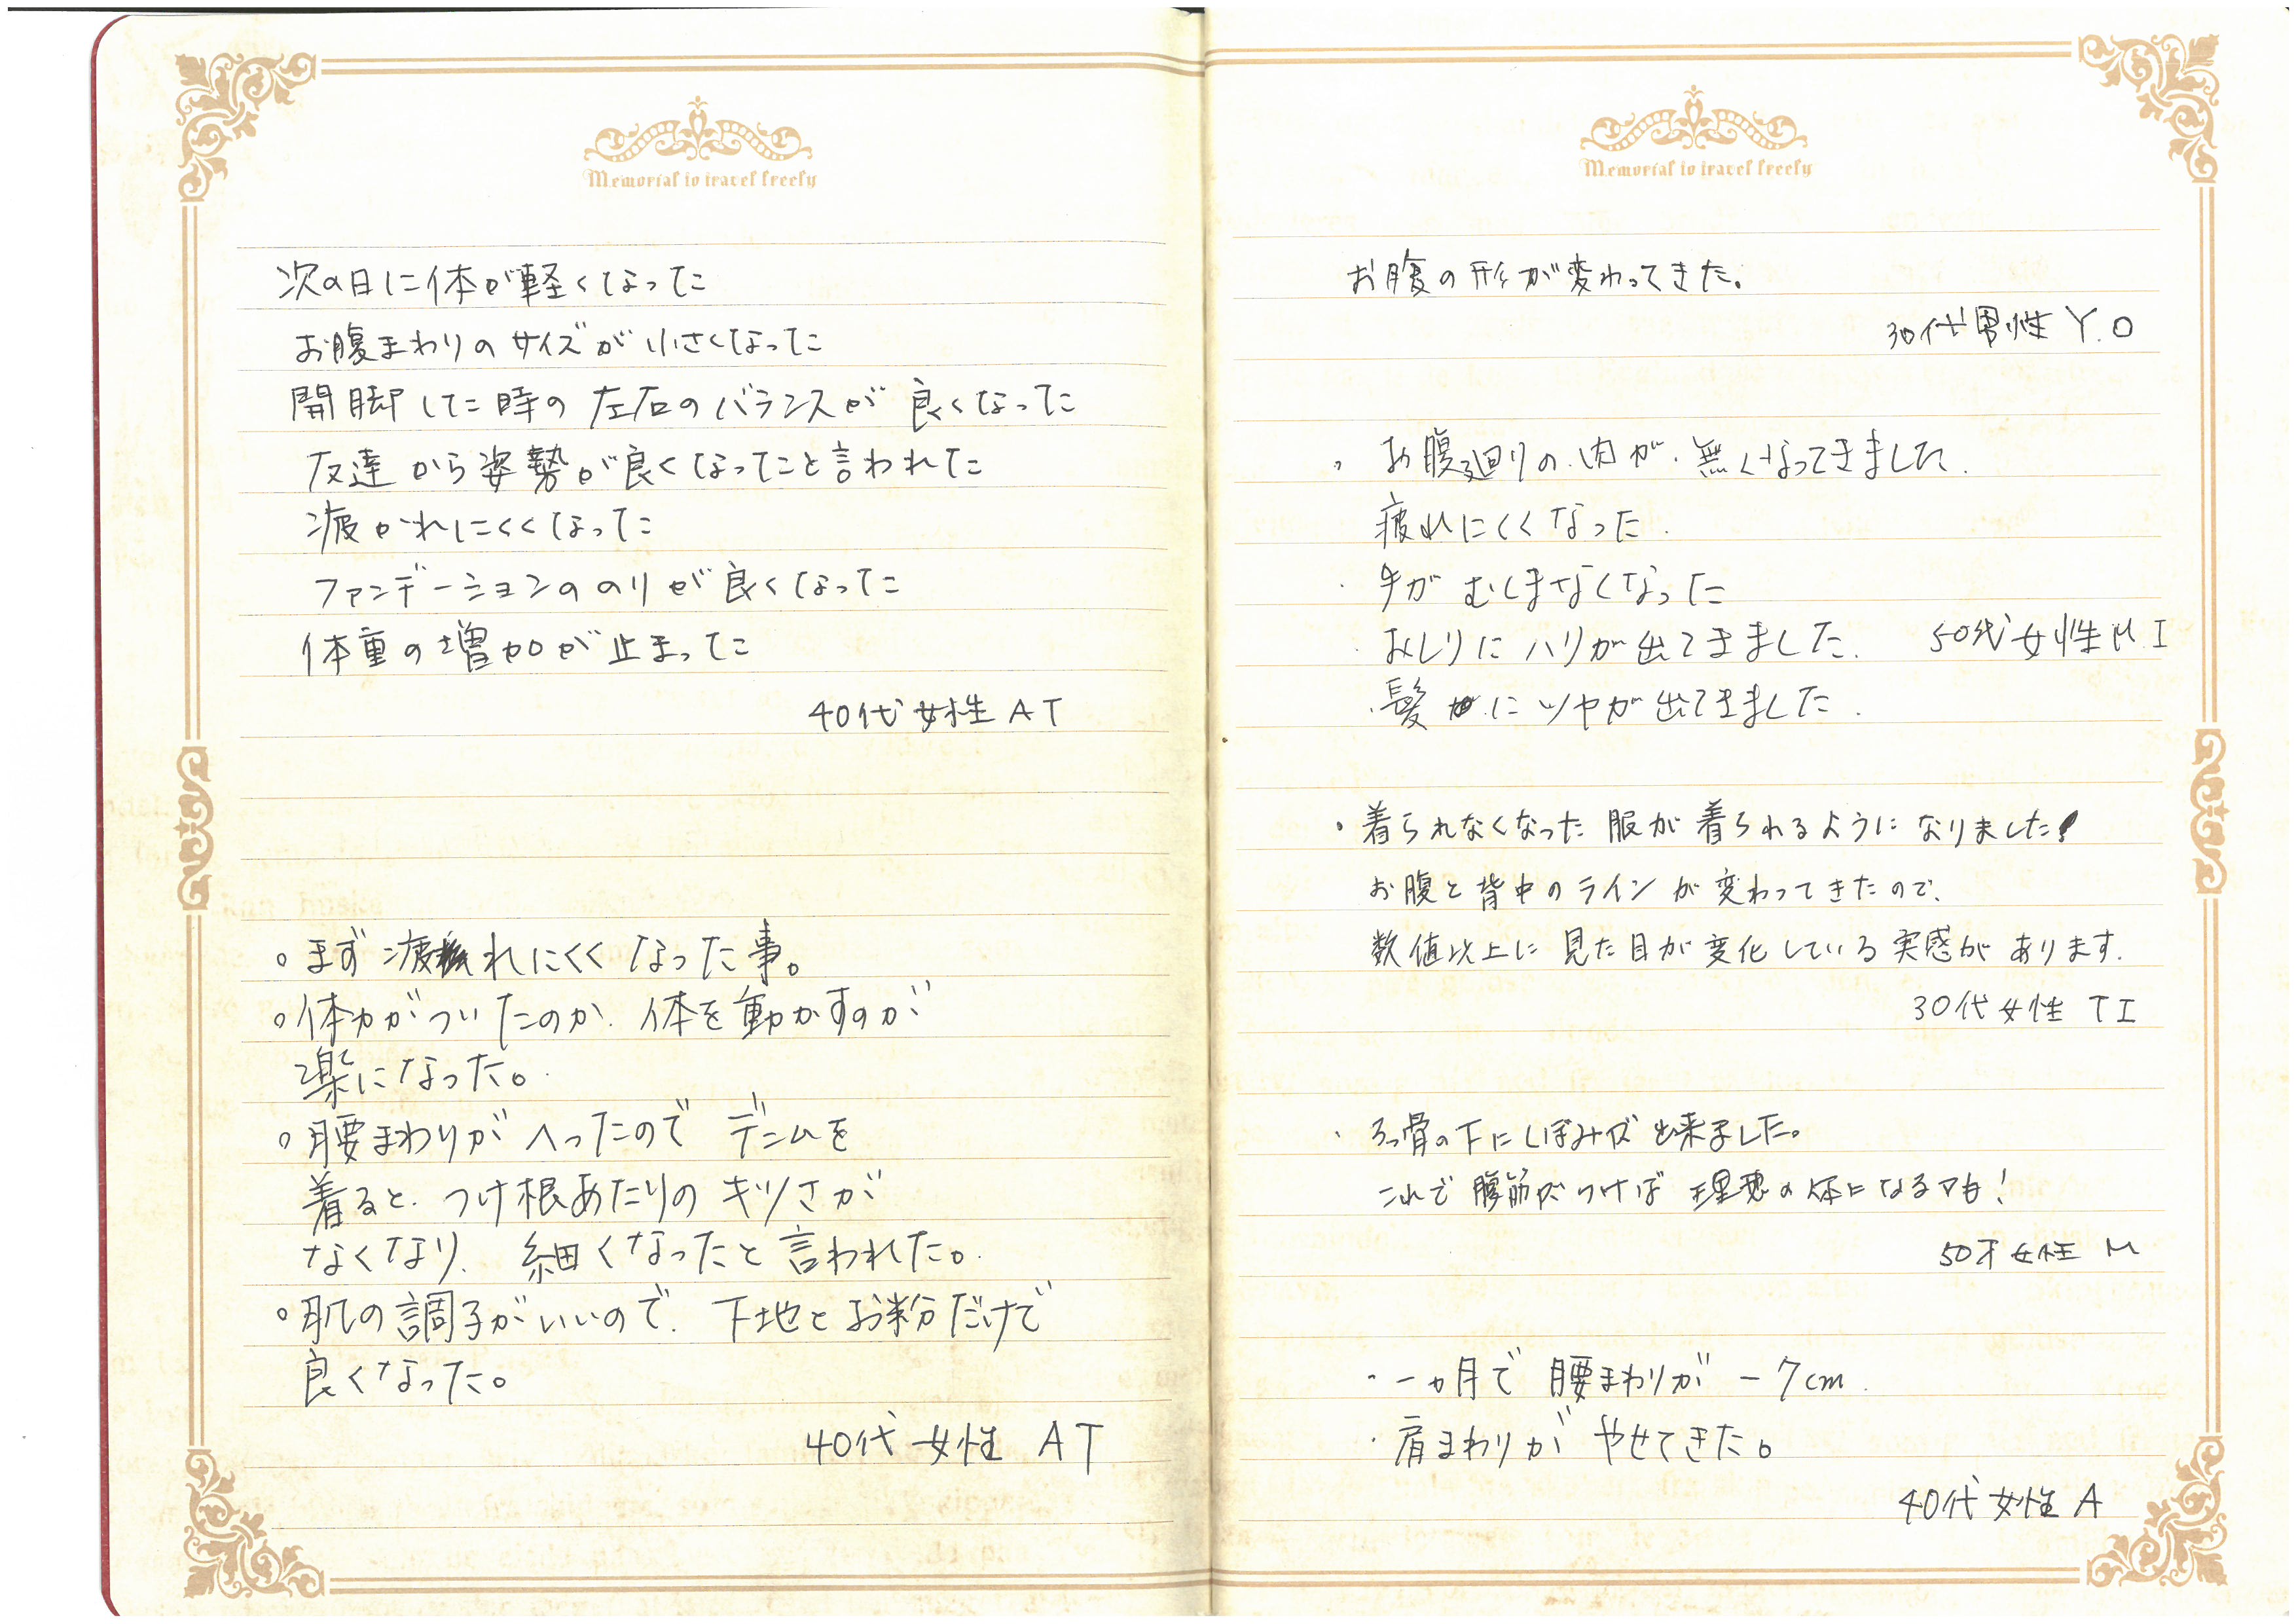 Memorial to travel freely
次の日に体が軽くなった
お腹まわりのサイズが小さくなった
開脚した時の左右のバランスが良くなった
友達から姿勢が良くなったと言われた
疲かれにくくなった
ファンデーションののりが良くなった
体重の増加が止まった
40代女性 AT
。まず疲れにくくなった事。
。体力がついたのか、体を動かすのが
楽になった。
。腰まわりがへったので デニムを
着ると、つけ根あたりのキツさが
なくなり、細くなったと言われた。
。肌の調子がいいので、下地とお粉だけで
良くなった。
40代 女性 AT
Memorial to travel freely
お腹の形が変わってきた。
30代男性 Y.O
・お腹廻りの肉が、無くなってきました。
疲れにくくなった.
・手がむくまなくなった
・おしりにハリが出てきました. 50代女性M.I
・髪にツヤが出てきました.
・着られなくなった服が着られるようになりました!
お腹と背中のラインが変わってきたので、
数値以上に見た目が変化している実感があります.
30代女性 TI
・ろっ骨の下にくぼみが出来ました。
これで腹筋がつけば理想の体になるかも!
50才女性 M
・一ヵ月で 腰まわりが −7cm.
・肩まわりが やせてきた。
40代女性 A